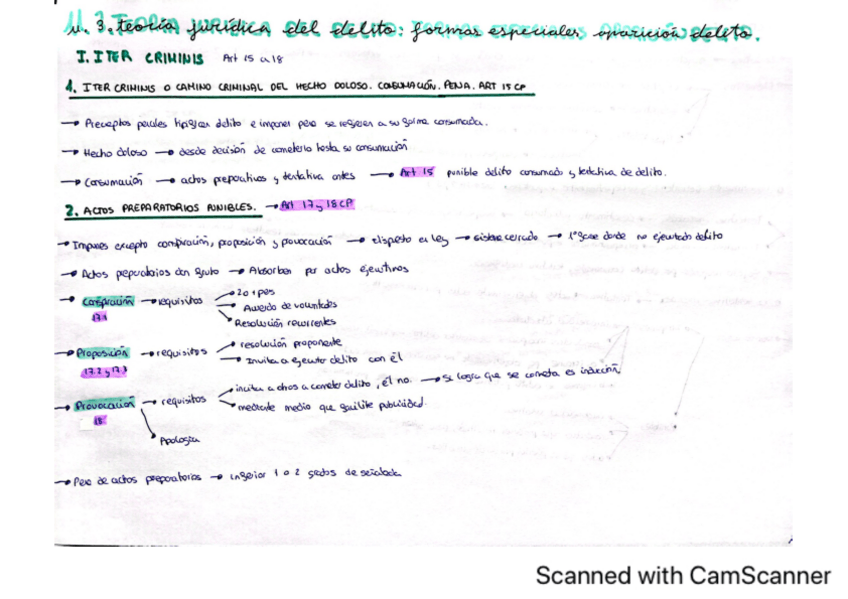 U. 3. Teoría jurídica del delito: formas especiales aparición delito.
I. ITER CRIMINIS Art 15 a 18
1. ITER CRIMINIS O CAMINO CRIMINAL DEL HECHO DOLOSO. CONSUMACIÓN. PENA. ART 15 CP
→ Preceptos penales tipifican delito e imponen pena se refieren a su forma consumada.
→ Hecho doloso → desde decisión de cometerlo hasta su consumación
→ Consumación → actos preparativos y tentativa antes → Art 15 punible delito consumado y tentativa de delito.
2. ACTOS PREPARATORIOS PUNIBLES. → Art 17 y 18 CP
→ Impunes excepto conspiración, proposición y provocación → dispuesto en ley → sistema cerrado → 1º fase donde no ejecutado delito
→ Actos preparatorios dan fruto → Absorben por actos ejecutivos
→ Conspiración → requisitos → 2 o + pers
17.1 → Acuerdo de voluntades
→ Resolución
→ Proposición → requisitos → resolución proponente
17.2 y 17.3 → Invita a ejecutar delito con él
→ Provocación → requisitos → incita a otros a cometer delito, él no. → Si logra que se cometa es inducción
18 → mediante medio que facilite publicidad.
→ Apología
→ Pena de actos preparatorios → inferior 1 o 2 grados de señalada
Scanned with CamScanner